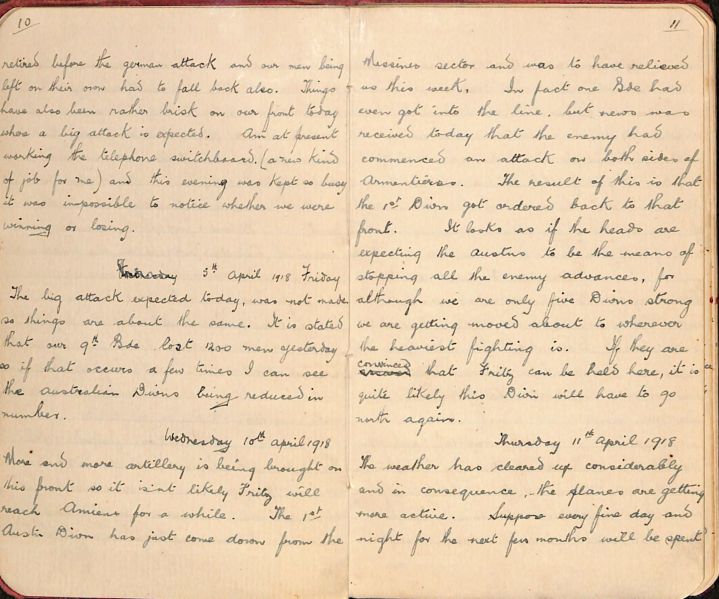 10
retired before the german attack and our men being
left on their own had to fall back also. Things
have also been rather brisk on our front today
where a big attack is expected. Am at present
working the telephone switchboard. (a new kind
of job for me) and this evening was kept so busy
it was impossible to notice whether we were
winning or losing.
5th April 1918 Friday
The big attack expected today, was not made
so things are about the same. It is stated
that our 9th Bde lost 1200 men yesterday
so if that occurs a few times I can see
the australian Divns being reduced in
number.
Wednesday 10th april 1918
More and more artillery is being brought on
this front so it isnt likely Fritz will
reach Amiens for a while. The 1st
Aust. Divn has just come down from the
11
Messines sector and was to have relieved
us this week. In fact one Bde had
even got into the line, but news was
received today that the enemy had
commenced an attack on both sides of
Armentières. The result of this is that
the 1st Divn got ordered back to that
front. It looks as if the heads are
expecting the austns to be the means of
stopping all the enemy advances, for
although we are only five Divns strong
we are getting moved about to wherever
the heaviest fighting is. If they are
convinced that Fritz can be held here, it is
quite likely this Divn will have to go
north again.
Thursday 11th April 1918
The weather has cleared up considerably
and in consequence, the planes are getting
more active. Suppose every fine day and
night for the next few months will be spent